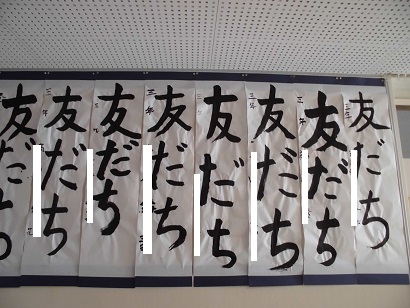 友だち
三年
友だち
三年
友だち
三年
友だち
三年
友だち
三年
友だち
三年
友だち
三年
友だち